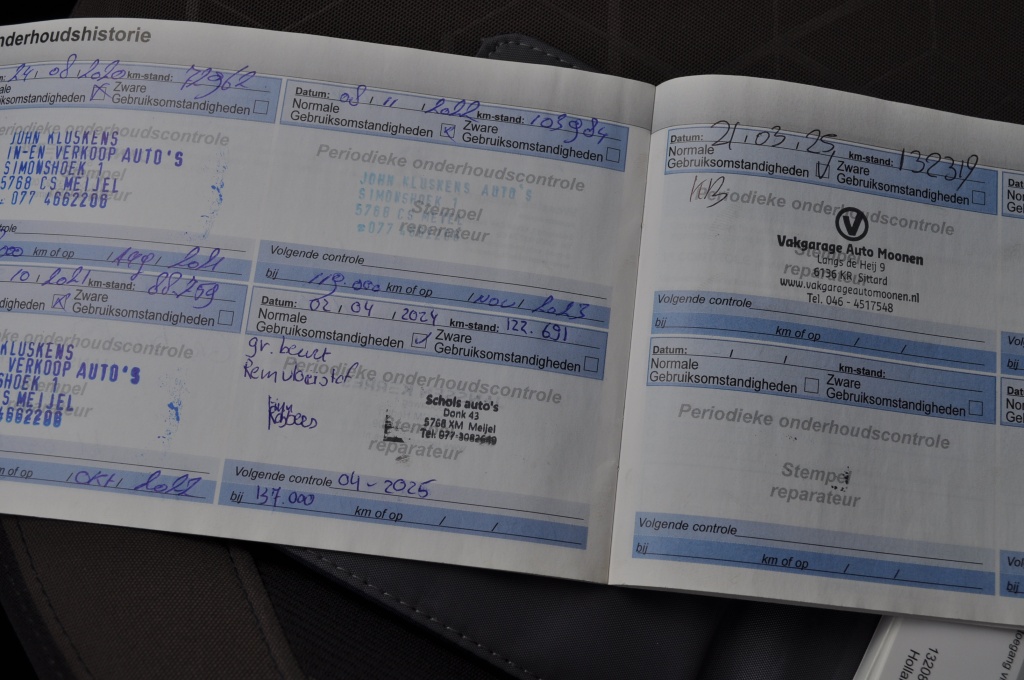 nderhoudshistorie
24, 08, 2020 km-stand: 72962
ale
ksomstandigheden Zware
Gebruiksomstandigheden
eriodieke onderhoudscontrole
JOHN KLUSKENS
IN-EN VERKOOP AUTO'S
SIMONSHOEK 1
5768 CS MEIJEL
077 4662208
role
000 km of op Aug, 2021
10, 2021 km-stand: 88759
digheden Zware
Gebruiksomstandigheden
dieke onderhoudscontrole
KLUSKENS
VERKOOP AUTO'S
SHOEK 1
S MEIJEL
4662208
m of op OKt, 2022
Datum: 08, 11, 2022 km-stand: 103984
Normale
Gebruiksomstandigheden Zware
Gebruiksomstandigheden
Periodieke onderhoudscontrole
JOHN KLUSKENS AUTO'S
SIMONSHOEK 1
Stempel
5768 CS
reparateur
Volgende controle
bij 119.000 km of op , Nov, 2023
Datum: 02, 04, 2024 km-stand: 122.691
Normale
Gebruiksomstandigheden Zware
Gebruiksomstandigheden
gr. beurt
Periodieke onderhoudscontrole
Remvloeistof
Schols auto's
Donk 43
5768 XM Meijel
Tel: 077-3082640
Stempel
reparateur
Volgende controle 04-2025
bij 137.000 km of op / /
Datum: 21, 03, 25 km-stand: 132319
Normale
Gebruiksomstandigheden Zware
Gebruiksomstandigheden
Periodieke onderhoudscontrole
V
Vakgarage Auto Moonen
Langs de Heij 9
6136 KR, Sittard
www.vakgarageautomoonen.nl
Tel. 046 - 4517548
Stempel
reparateur
Volgende controle
bij km of op / /
Datum: / / km-stand:
Normale
Gebruiksomstandigheden Zware
Gebruiksomstandigheden
Periodieke onderhoudscontrole
Stempel
reparateur
Volgende controle
bij km of op / /
Dat
Nor
Ge
Vol
bij
Dat
Nor
Geb
Vol
bij
Toegang v
1320
Holla